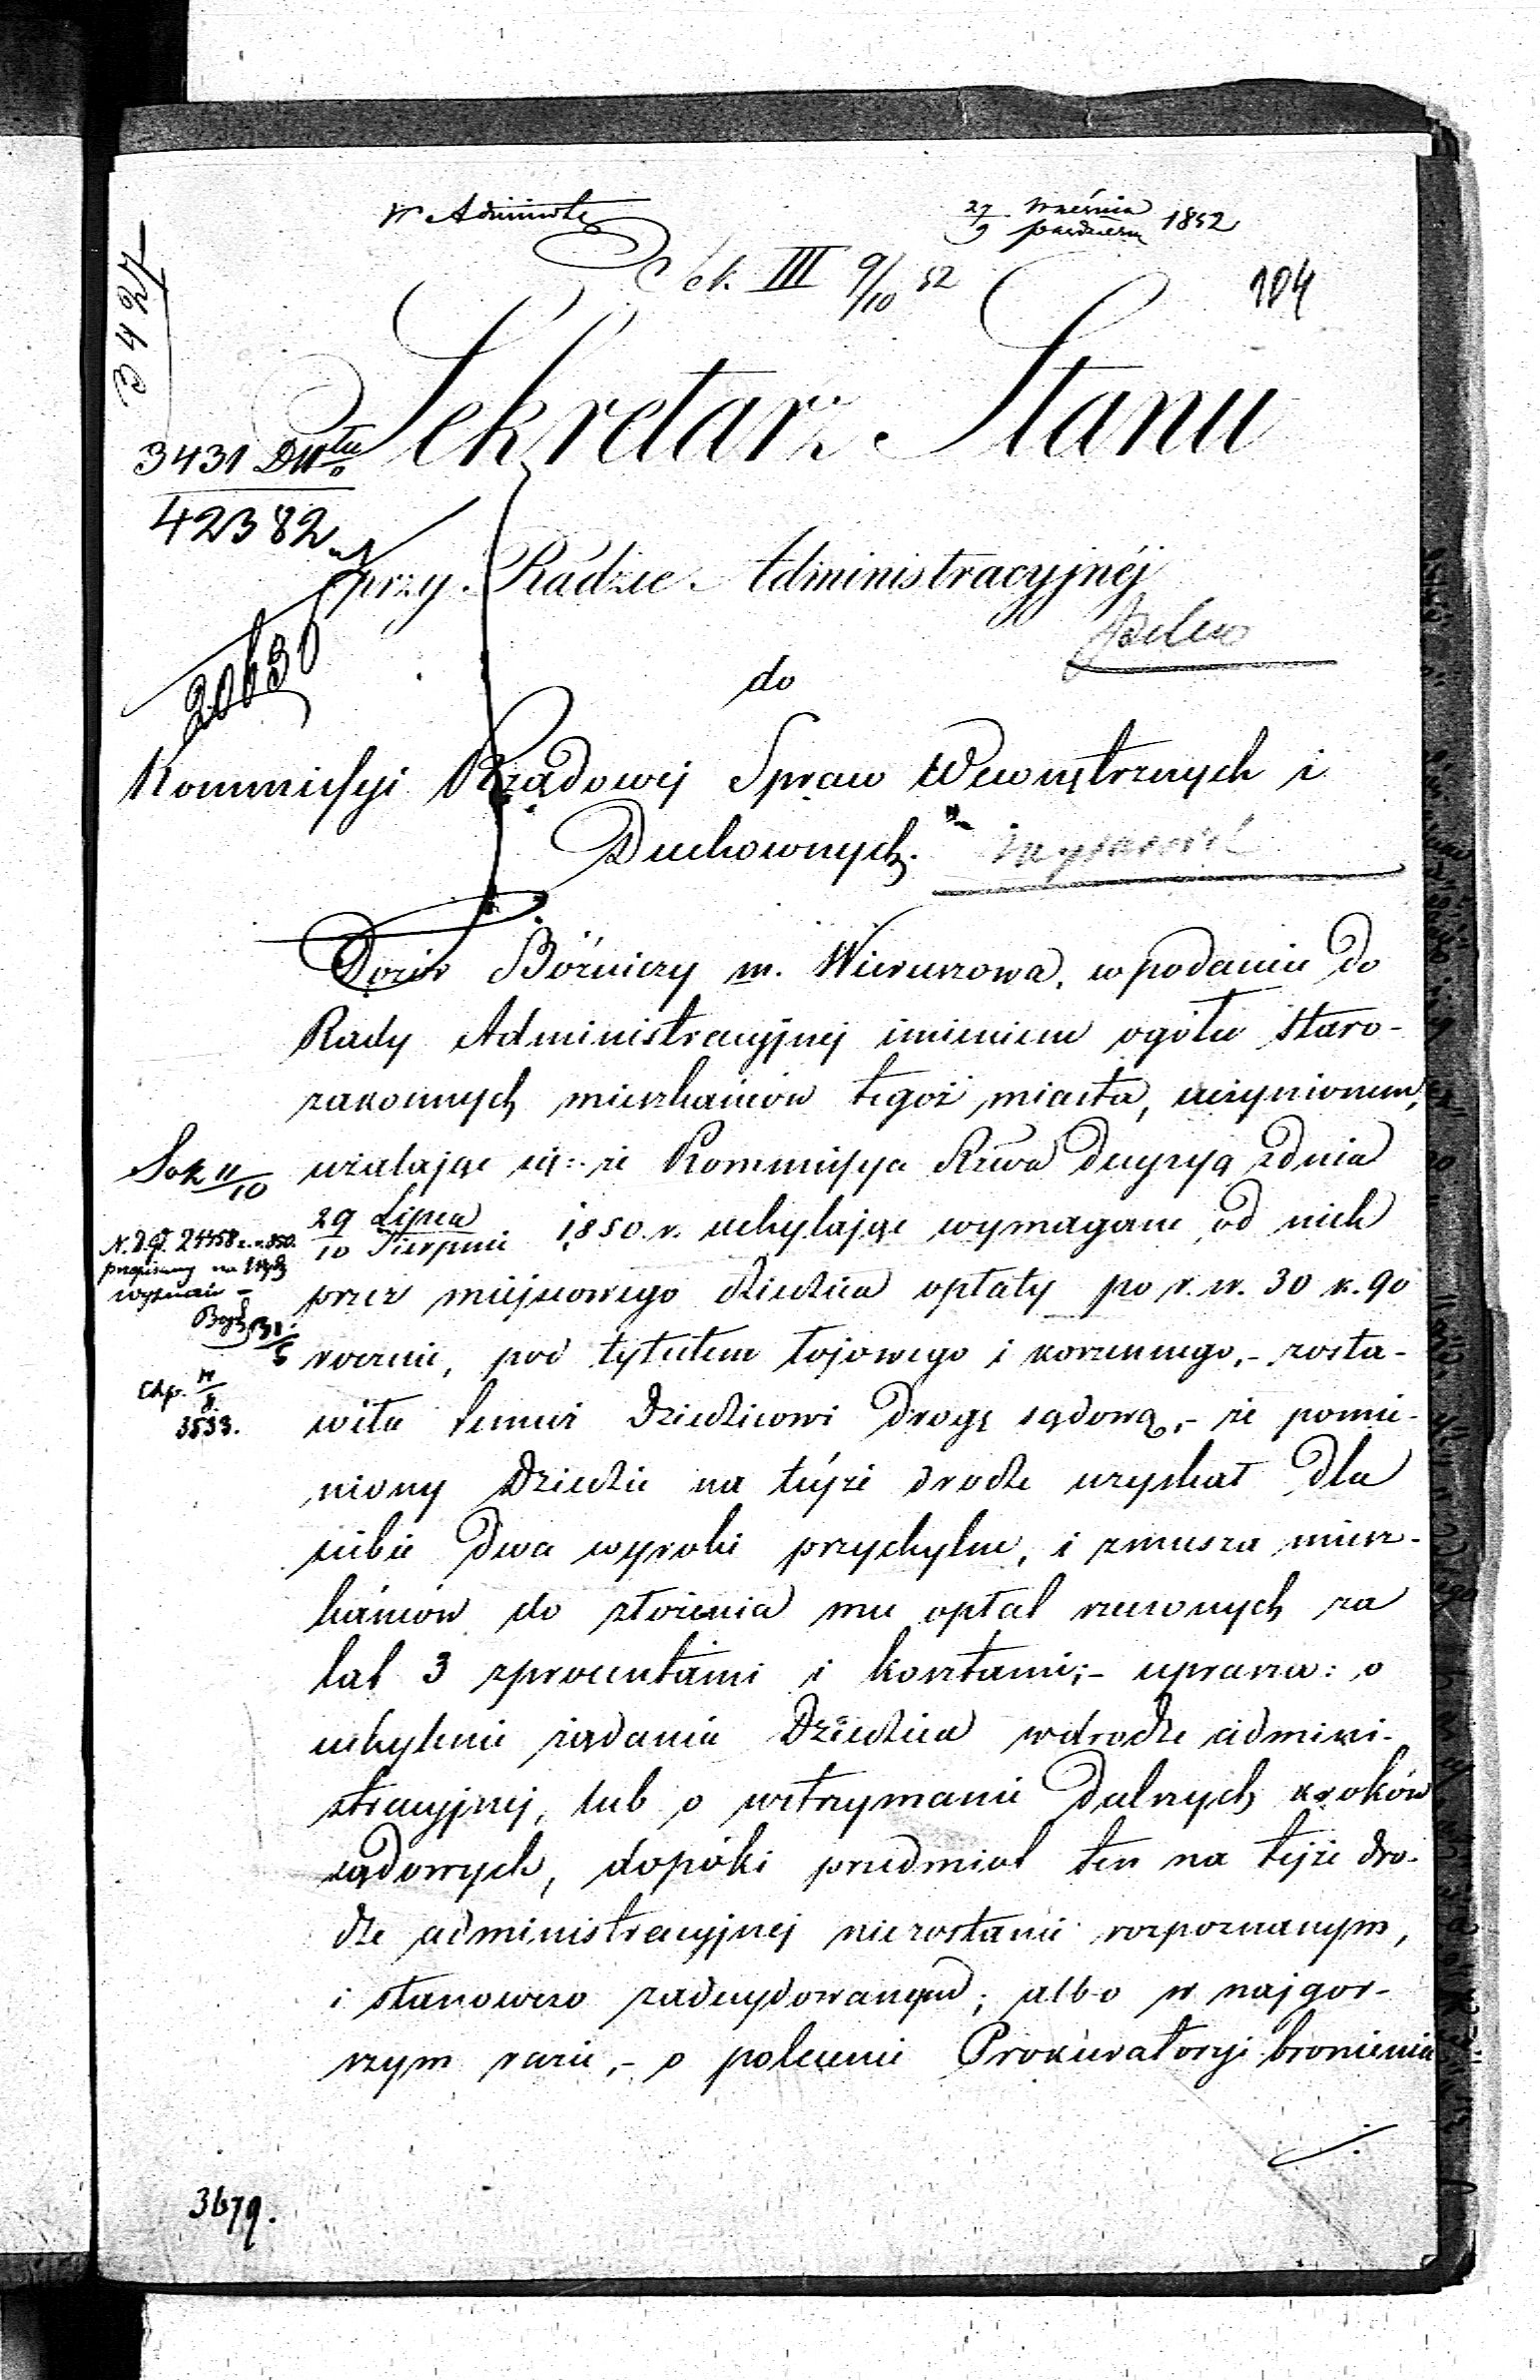 W Administr
27 Września
9 Październ 1852
Sek. III 9/10 52
104
3427
Sekretarz Stanu
3431 DW
42382
przy Radzie Administracyjnéj
20630
do
Kommissyi Rządowéj Spraw Wewnętrznych i
Duchownych.
Wyznań
Dozór Bóżniczy m. Wieruszowa, w podaniu do
Rady Administracyjnej imieniem ogółu staro-
zakonnych mieszkańców tegoż miasta, uczynionem,
użalając się:- że Kommissya Rzwa decyzyą z dnia
29 Lipca
10 Sierpnia 1850. r. uchylając wymagane od nich
przez miejscowego dziedzica opłaty po r. sr. 30 k. 90
rocznie, pod tytułem łojowego i korzennego,- zosta-
wiła temuż Dziedzicowi drogę sądową,- że pomie-
niony Dziedzic na téjże drodze uzyskał dla
siebie dwa wyroki przychylne, i zmusza miesz-
kańców do złożenia mu opłat rzeczonych za
lat 3 z procentami i kosztami;- uprasza: o
uchylenie żądania Dziedzica w drodze admini-
stracyjnej, lub o wstrzymanie dalszych kroków
sądowych, dopóki przedmiot ten na tejże dro-
dze administracyjnej niezostanie rozpoznanym,
i stanowczo zadecydowanym; albo w najgor-
szym razie,- o polecenie Prokuratoryi bronienia
./.
Sek 11/10
N. D. G. 21458 z r. 850.
przepisany na Wydz
wyznań -
Exp. 14/8
3533.
3679.